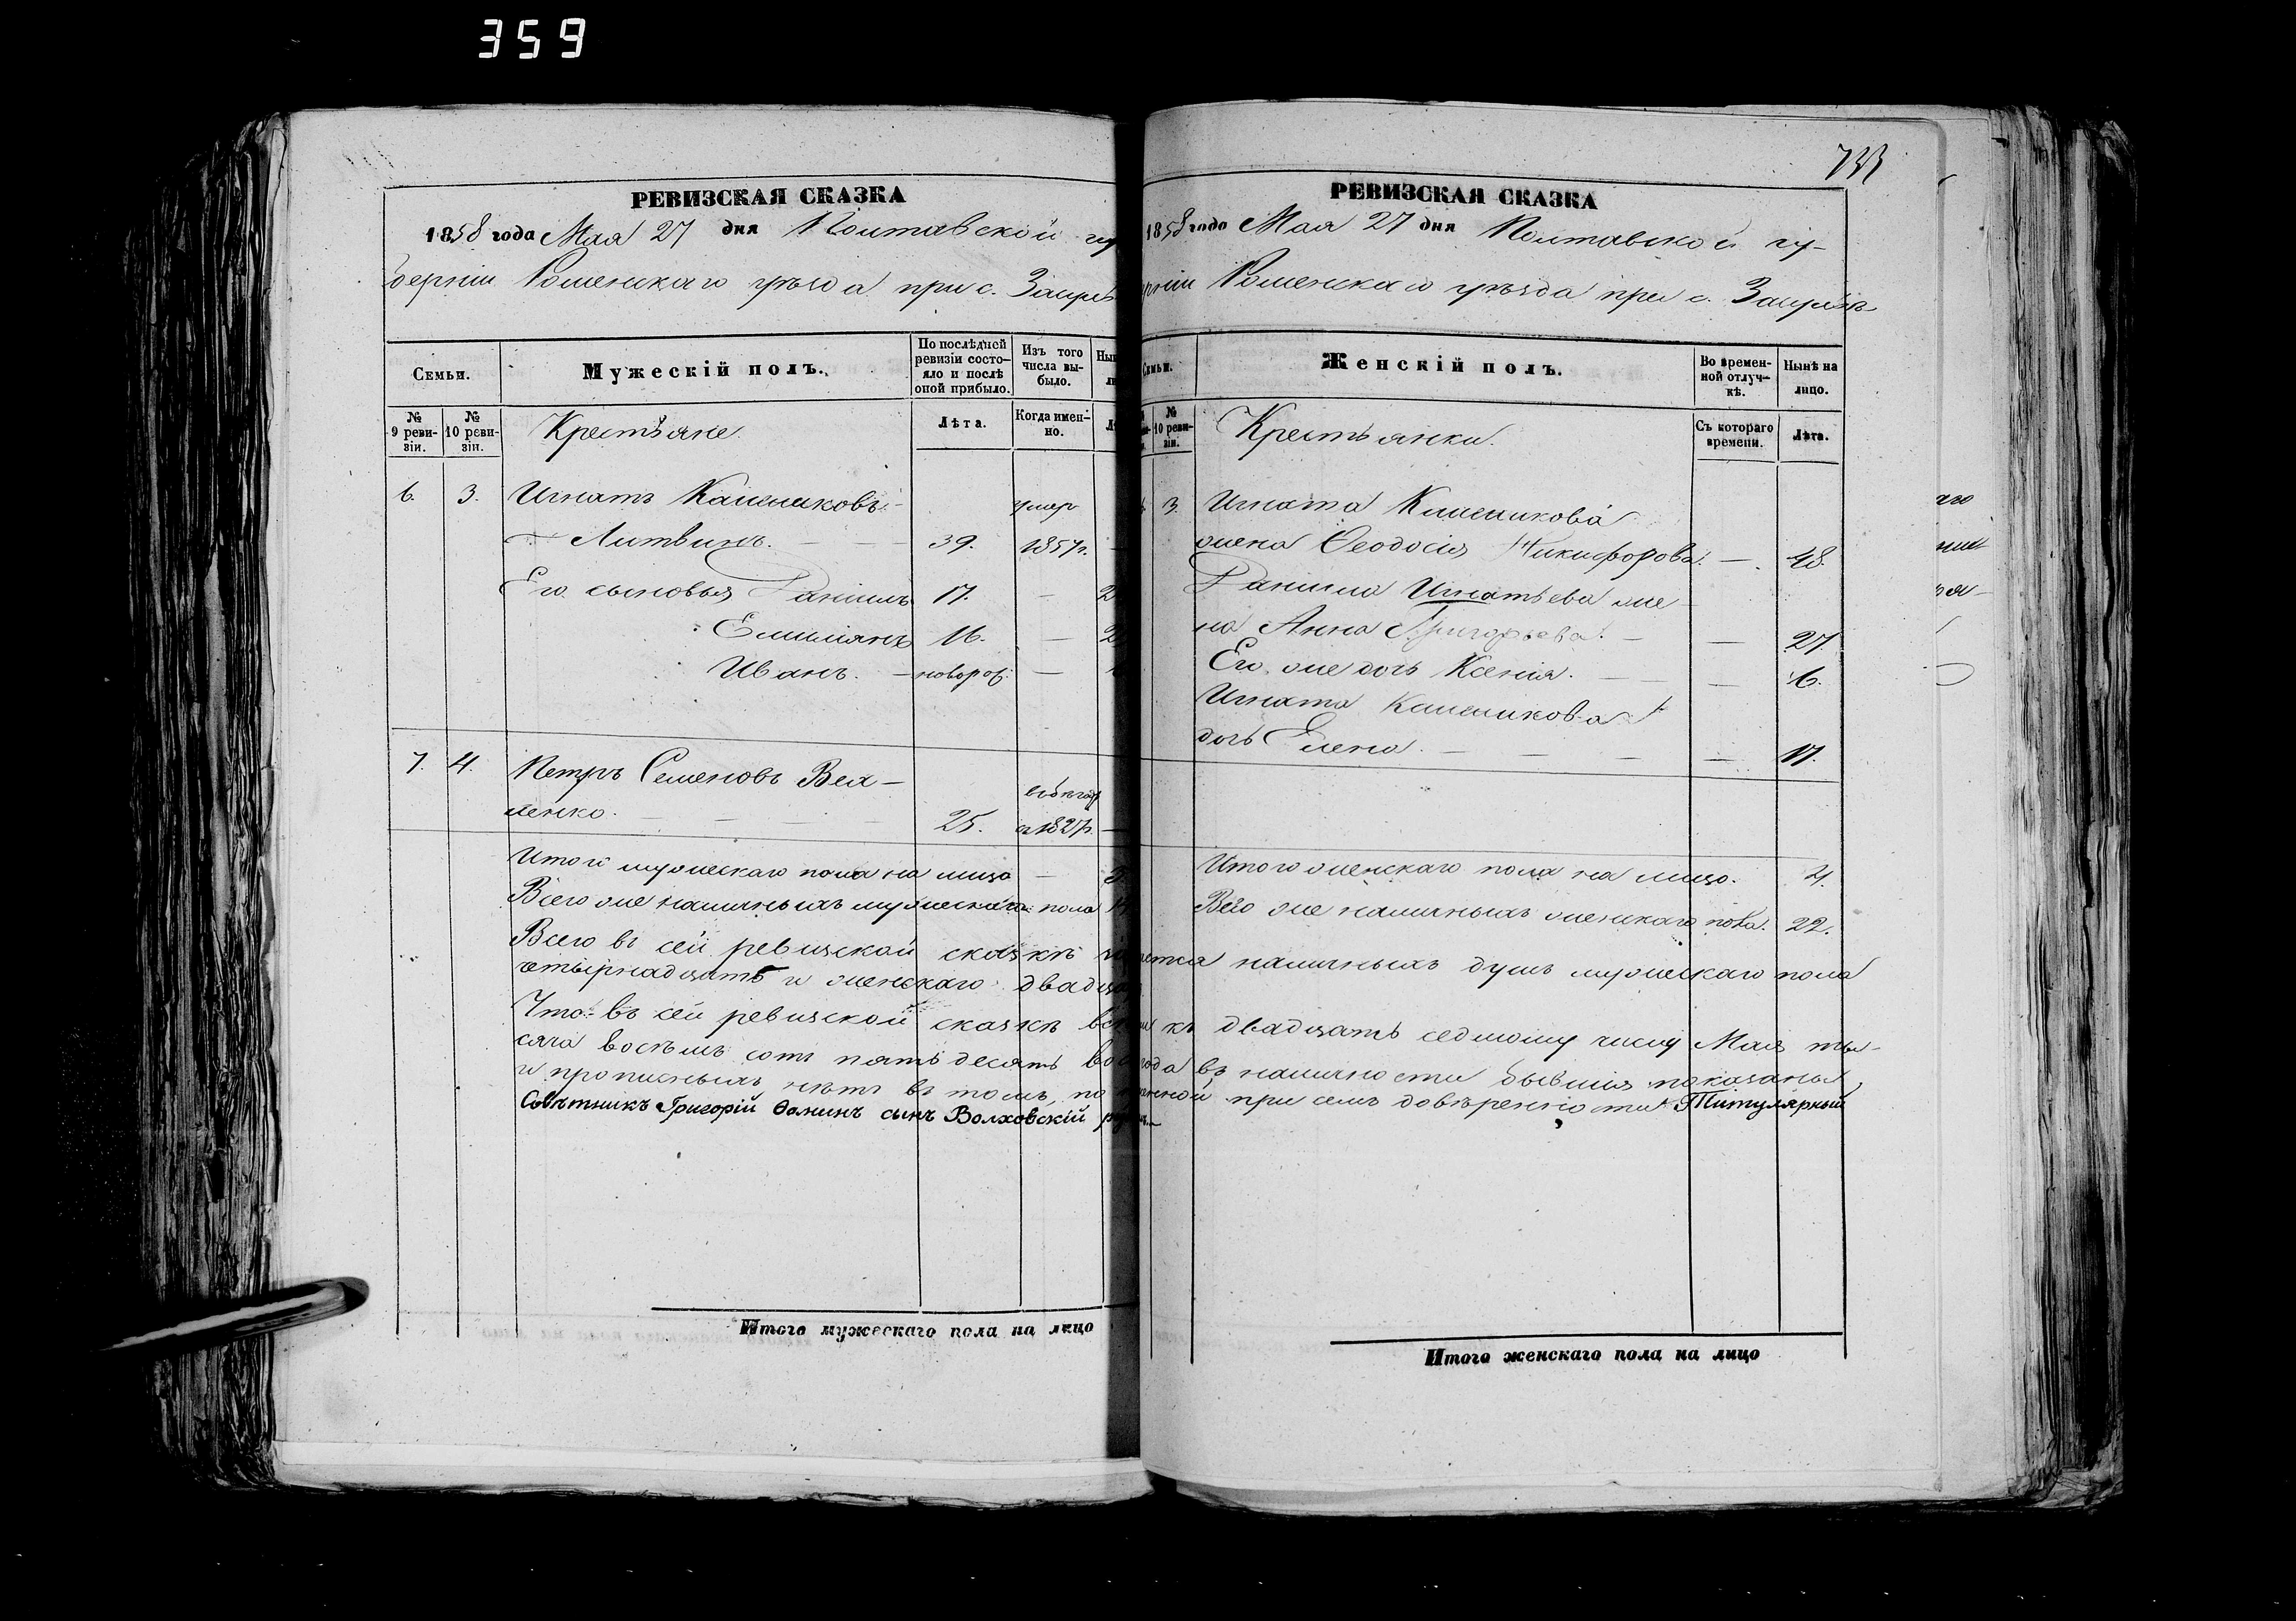 359
РЕВИЗСКАЯ СКАЗКА
1858 года Мая 27 дня Полтавской гу
берніи Роменскаго уѣзда при с. Засул
Семьи.
Мужескій полъ.
По послѣдней ревизіи состо-
яло и послѣ
оной прибыло.
Изъ того
числа вы-
было.
№
9 реви-
зіи.
№
10 реви-
зіи.
Крестьяне.
Лѣта.
Когда имен-
но.
6. 3. Игнатъ Калениковъ умер
Литвинъ. — — 39. 1857г. —
Его сыновья Даніилъ 17. — 2
Емиліянъ 16. — 2
Иванъ. — новорож. —
7. 4. Петръ Семеновъ Вел-
ленко. — — — — 25. въ бѣгах с 1827г. —
Итого мужескаго пола на лицо —
Всего же наличныхъ мужескаго пола
Всего въ сей ревизской сказкѣ
четырнадцать и женскаго двадца
Что въ сей ревизской сказкѣ вс
сяча восемь сотъ пятьдесятъ вос
и прописныхъ нѣтъ въ томъ, по
Совѣтникъ Григорій Ѳоминъ сынъ Волховскій
Итого мужескаго пола на лицо
РЕВИЗСКАЯ СКАЗКА
1858 года Мая 27 дня Полтавской гу-
рніи Роменскаго уѣзда при с. Засульѣ
Семьи.
Женскій полъ.
Во времен-
ной отлуч-
кѣ.
Нынѣ на
лицо.
№
10 реви-
зіи.
Крестьянки.
Съ котораго
времени.
Лѣта.
3. Игната Каленикова
жена Ѳеодосія Никифорова. — 48.
Данила Игнатьева же-
на Анна Григорьева. — — 27.
Его же дочь Ксенія. — — 6.
Игната Каленикова
дочь Елена. — — — — 17.
Итого женскаго пола на лицо. 4.
Всего же наличныхъ женскаго пола. 22.
наличныхъ душъ мужескаго пола
къ двадцать седмому числу Мая ты-
года въ наличности бывшія показаны,
при семъ довѣренности Титулярный
Итого женскаго пола на лицо